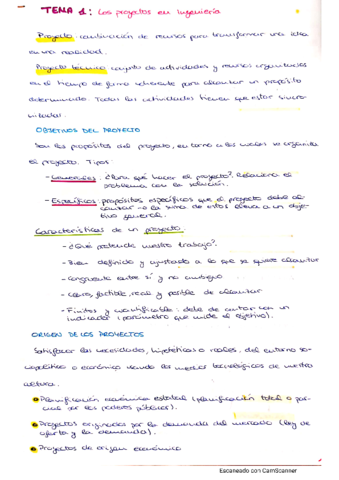 TEMA 1: Los proyectos en ingeniería
Proyecto: combinación de recursos para transformar una idea
en una realidad.
Proyecto técnico: conjunto de actividades y recursos organizados
en el tiempo de forma coherente para alcanzar un propósito
determinado. Todas las actividades tienen que estar sincro-
nizadas.
OBJETIVOS DEL PROYECTO
Son los propósitos del proyecto, en torno a los cuales se organiza
el proyecto. Tipos:
- Generales: ¿Para qué hacer el proyecto? Relaciona el
problema con la solución.
- Específicos: propósitos específicos que el proyecto debe al-
canzar → la suma de estos lleva a un obje-
tivo general.
Características de un proyecto.
- ¿Qué pretende nuestro trabajo?
- Bien definido y ajustado a lo que se quiere alcanzar
- Congruente entre sí y no ambiguo
- Claro, factible, real y posible de alcanzar.
- Finitos y cuantificable: debe de contar con un
indicador (parámetro que mide el objetivo).
ORIGEN DE LOS PROYECTOS
Satisfacer las necesidades, hipotéticas o reales, del entorno so-
ciopolítico o económico usando los medios tecnológicos de nuestra
cultura.
Planificación económica estatal (planificación total o par-
cial por los poderes públicos).
Proyectos originados por la demanda del mercado (ley de
oferta y la demanda).
Proyectos de origen económico
Escaneado con CamScanner